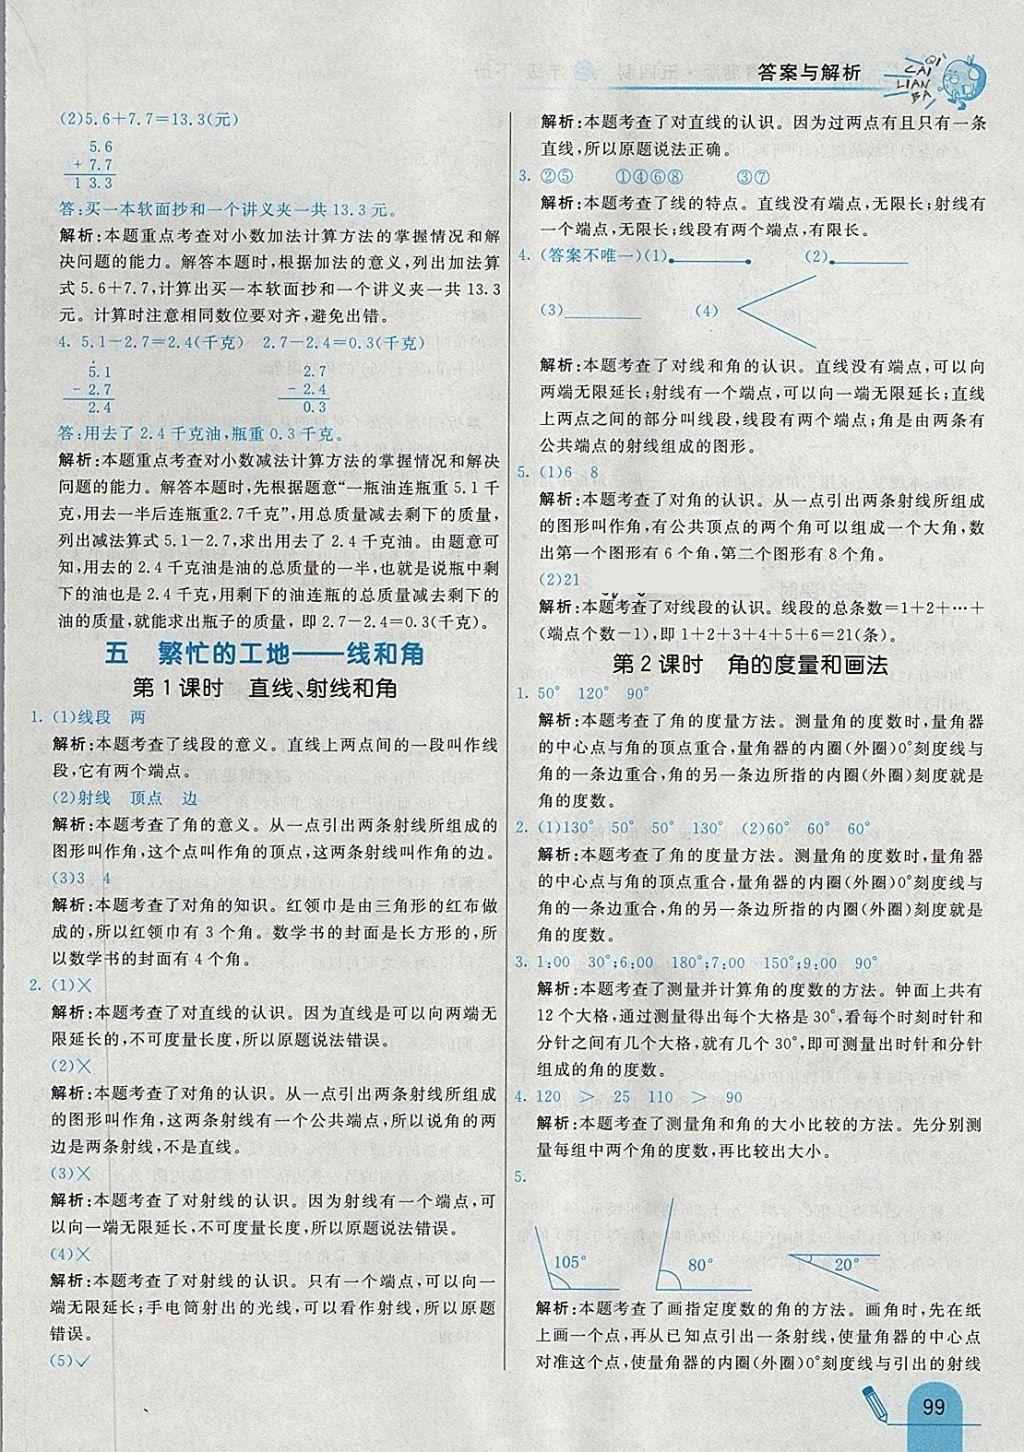 答案与解析
QI
CAI
LIAN
BA
(2)5.6+7.7=13.3(元)
5.6
+ 7.7
1 3.3
答:买一本软面抄和一个讲义夹一共 13.3 元。
解析:本题重点考查对小数加法计算方法的掌握情况和解
决问题的能力。解答本题时,根据加法的意义,列出加法算
式 5.6+7.7,计算出买一本软面抄和一个讲义夹一共 13.3
元。计算时注意相同数位要对齐,避免出错。
4. 5.1-2.7=2.4(千克) 2.7-2.4=0.3(千克)
5.1 2.7
- 2.7 - 2.4
2.4 0.3
答:用去了 2.4 千克油,瓶重 0.3 千克。
解析:本题重点考查对小数减法计算方法的掌握情况和解决
问题的能力。解答本题时,先根据题意“一瓶油连瓶重 5.1 千
克,用去一半后连瓶重2.7千克”,用总质量减去剩下的质量,
列出减法算式 5.1-2.7,求出用去了 2.4 千克油。由题意可
知,用去的 2.4 千克油是油的总质量的一半,也就是说瓶中剩
下的油也是 2.4 千克,用剩下的油连瓶的总质量减去剩下的
油的质量,就能求出瓶子的质量,即 2.7-2.4=0.3(千克)。
五 繁忙的工地——线和角
第 1 课时 直线、射线和角
1. (1)线段 两
解析:本题考查了线段的意义。直线上两点间的一段叫作线
段,它有两个端点。
(2)射线 顶点 边
解析:本题考查了角的意义。从一点引出两条射线所组成的
图形叫作角,这个点叫作角的顶点,这两条射线叫作角的边。
(3)3 4
解析:本题考查了对角的知识。红领巾是由三角形的红布做
成的,所以红领巾有 3 个角。数学书的封面是长方形的,所
以数学书的封面有 4 个角。
2. (1)×
解析:本题考查了对直线的认识。因为直线是可以向两端无
限延长的,不可度量长度,所以原题说法错误。
(2)×
解析:本题考查了对角的认识。从一点引出两条射线所组成
的图形叫作角,这两条射线有一个公共端点,所以说角的两
边是两条射线,不是直线。
(3)×
解析:本题考查了对射线的认识。因为射线有一个端点,可
以向一端无限延长,不可度量长度,所以原题说法错误。
(4)×
解析:本题考查了对射线的认识。只有一个端点,可以向一
端无限延长;手电筒射出的光线,可以看作射线,所以原题
错误。
(5)✓
解析:本题考查了对直线的认识。因为过两点有且只有一条
直线,所以原题说法正确。
3. ②⑤ ①④⑥⑧ ③⑦
解析:本题考查了线的特点。直线没有端点,无限长;射线有
一个端点,无限长;线段有两个端点,有限长。
4. (答案不唯一)(1) (2)
(3) (4)
解析:本题考查了对线和角的认识。直线没有端点,可以向
两端无限延长;射线有一个端点,可以向一端无限延长;直线
上两点之间的部分叫线段,线段有两个端点;角是由两条有
公共端点的射线组成的图形。
5. (1)6 8
解析:本题考查了对角的认识。从一点引出两条射线所组成
的图形叫作角,有公共顶点的两个角可以组成一个大角,数
出第一个图形有 6 个角,第二个图形有 8 个角。
(2)21
解析:本题考查了对线段的认识。线段的总条数=1+2+…+
(端点个数-1),即 1+2+3+4+5+6=21(条)。
第 2 课时 角的度量和画法
1. 50° 120° 90°
解析:本题考查了角的度量方法。测量角的度数时,量角器
的中心点与角的顶点重合,量角器的内圈(外圈)0°刻度线与
角的一条边重合,角的另一条边所指的内圈(外圈)刻度就是
角的度数。
2. (1)130° 50° 50° 130° (2)60° 60° 60°
解析:本题考查了角的度量方法。测量角的度数时,量角器
的中心点与角的顶点重合,量角器的内圈(外圈)0°刻度线与
角的一条边重合,角的另一条边所指的内圈(外圈)刻度就是
角的度数。
3. 1:00 30°;6:00 180°;7:00 150°;9:00 90°
解析:本题考查了测量并计算角的度数的方法。钟面上共有
12 个大格,通过测量得出每个大格是 30°,看每个时刻时针和
分针之间有几个大格,就有几个 30°,即可测量出时针和分针
组成的角的度数。
4. 120 > 25 110 > 90
解析:本题考查了测量角和角的大小比较的方法。先分别测
量每组中两个角的度数,再比较出大小。
5.
105° 80° 20°
解析:本题考查了画指定度数的角的方法。画角时,先在纸
上画一个点,再从已知点引出一条射线,使量角器的中心点
对准这个点,使量角器的内圈(外圈)0°刻度线与引出的射线
99